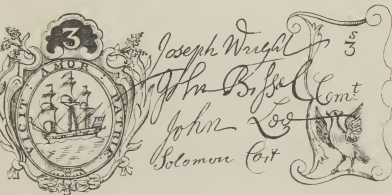 3
VICIT AMOR PATRIÆ
Joseph Wright
John Bissel
Com.t
John Lee
Solomon Coit
s
3